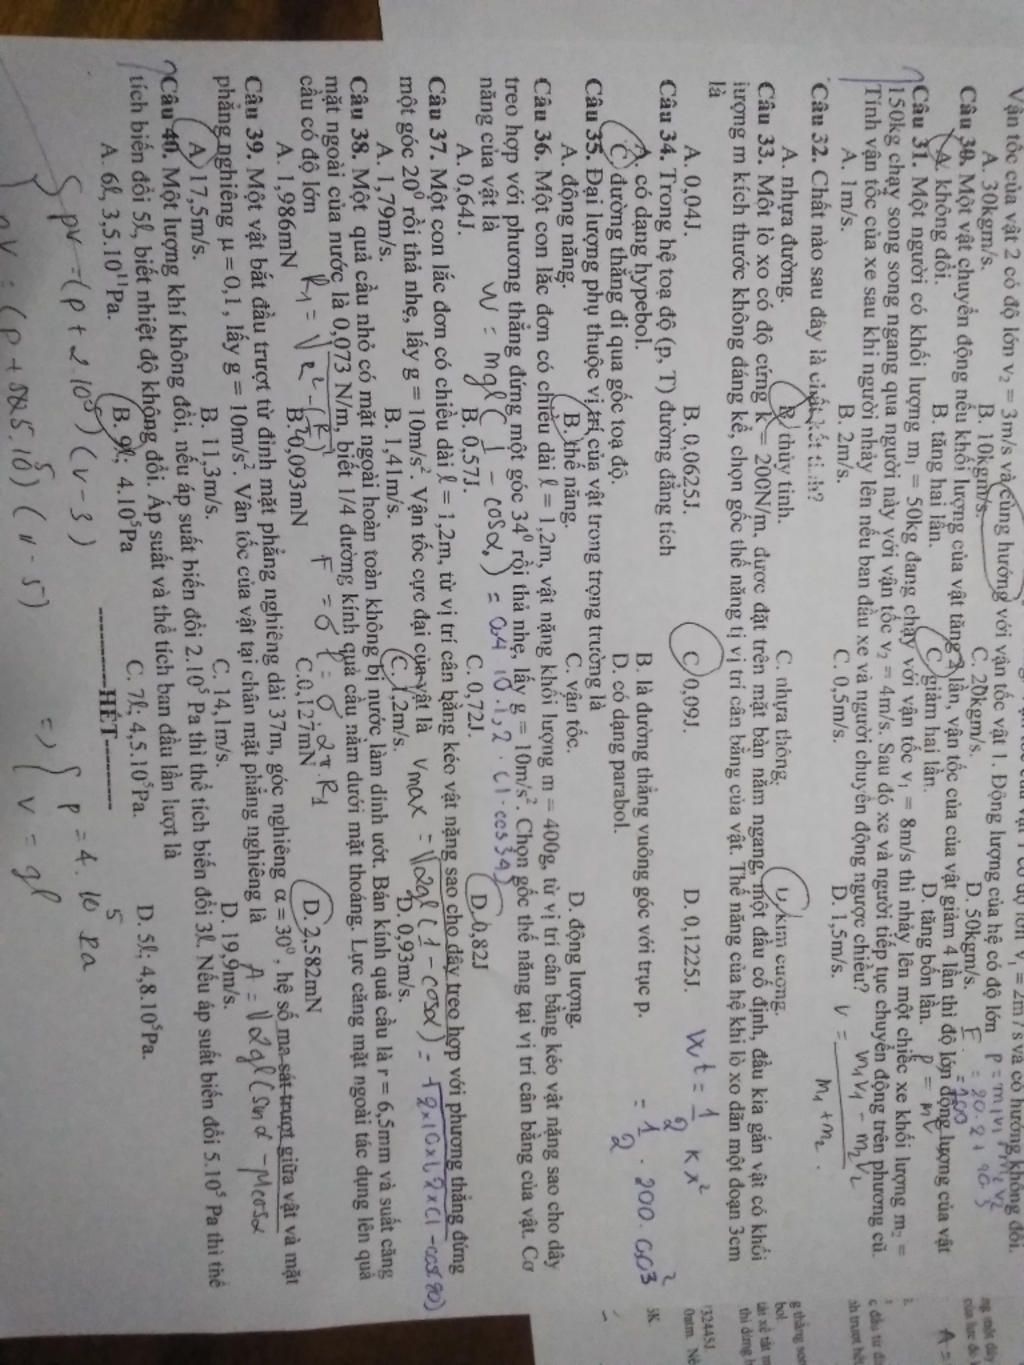 Vận tốc của vật 2 có độ lớn v₂ = 3m/s và cùng hướng với vận tốc vật 1. Động lượng của hệ có độ lớn
A. 30kgm/s. B. 10kgm/s. C. 20kgm/s. D. 50kgm/s.
Câu 30. Một vật chuyển động nếu khối lượng của vật tăng 2 lần, vận tốc của của vật giảm 4 lần thì độ lớn động lượng của vật
A. không đổi. B. tăng hai lần. C. giảm hai lần. D. tăng bốn lần.
Câu 31. Một người có khối lượng m₁ = 50kg đang chạy với vận tốc v₁ = 8m/s thì nhảy lên một chiếc xe khối lượng m₂ =
150kg chạy song song ngang qua người này với vận tốc v₂ = 4m/s. Sau đó xe và người tiếp tục chuyển động trên phương cũ.
Tính vận tốc của xe sau khi người nhảy lên nếu ban đầu xe và người chuyển động ngược chiều?
A. 1m/s. B. 2m/s. C. 0,5m/s. D. 1,5m/s.
v = m₁v₁ - m₂v₂
m₁ + m₂
Câu 32. Chất nào sau đây là chất kết tinh?
A. nhựa đường. B. thủy tinh. C. nhựa thông. D. kim cương.
Câu 33. Một lò xo có độ cứng k = 200N/m, được đặt trên mặt bàn nằm ngang, một đầu cố định, đầu kia gắn vật có khối
lượng m kích thước không đáng kể, chọn gốc thế năng tị vị trí cân bằng của vật. Thế năng của hệ khi lò xo dãn một đoạn 3cm
là
Wt = 1/2 kx²
A. 0,04J. B. 0,0625J. C. 0,09J. D. 0,1225J.
= 1/2 . 200. 0,03²
Câu 34. Trong hệ toạ độ (p, T) đường đẳng tích
A. có dạng hypebol. B. là đường thẳng vuông góc với trục p.
C. đường thẳng đi qua gốc toạ độ. D. có dạng parabol.
Câu 35. Đại lượng phụ thuộc vị trí của vật trong trọng trường là
A. động năng. B. thế năng. C. vận tốc. D. động lượng.
Câu 36. Một con lắc đơn có chiều dài ℓ = 1,2m, vật nặng khối lượng m = 400g, từ vị trí cân bằng kéo vật nặng sao cho dây
treo hợp với phương thẳng đứng một góc 34⁰ rồi thả nhẹ, lấy g = 10m/s². Chọn gốc thế năng tại vị trí cân bằng của vật. Cơ
năng của vật là W = mgl(1 - cosα) = 0,4.10.1,2.(1-cos34)
A. 0,64J. B. 0,57J. C. 0,72J. D. 0,82J
Câu 37. Một con lắc đơn có chiều dài ℓ = 1,2m, từ vị trí cân bằng kéo vật nặng sao cho dây treo hợp với phương thẳng đứng
một góc 20⁰ rồi thả nhẹ, lấy g = 10m/s². Vận tốc cực đại của vật là Vmax = √2gl(1 - cosα) = √2×10×1,2×(1-cos20)
A. 1,79m/s. B. 1,41m/s. C. 1,2m/s. D. 0,93m/s.
Câu 38. Một quả cầu nhỏ có mặt ngoài hoàn toàn không bị nước làm dính ướt. Bán kính quả cầu là r = 6,5mm và suất căng
mặt ngoài của nước là 0,073 N/m, biết 1/4 đường kính quả cầu nằm dưới mặt thoáng. Lực căng mặt ngoài tác dụng lên quả
cầu có độ lớn F = σl = σ2π.R₁
A. 1,986mN B. 0,093mN C.0,127mN D. 2,582mN
Câu 39. Một vật bắt đầu trượt từ đỉnh mặt phẳng nghiêng dài 37m, góc nghiêng α = 30⁰, hệ số ma sát trượt giữa vật và mặt
phẳng nghiêng μ = 0,1 , lấy g = 10m/s². Vận tốc của vật tại chân mặt phẳng nghiêng là A = √2gl(sinα - μcosα
A. 17,5m/s. B. 11,3m/s. C. 14,1m/s. D. 19,9m/s.
Câu 40. Một lượng khí không đổi, nếu áp suất biến đổi 2.10⁵ Pa thì thể tích biến đổi 3ℓ. Nếu áp suất biến đổi 5.10⁵ Pa thì thể
tích biến đổi 5ℓ, biết nhiệt độ không đổi. Áp suất và thể tích ban đầu lần lượt là
A. 6ℓ, 3,5.10¹¹Pa. B. 9ℓ; 4.10⁵Pa C. 7ℓ; 4,5.10⁵Pa. D. 5ℓ; 4,8.10⁵Pa.
HẾT
pv = (p + 2.10⁵)(v - 3)
pv = (p + 5.10⁵)(v - 5)
=> p = 4.10⁵ Pa
v = 9l